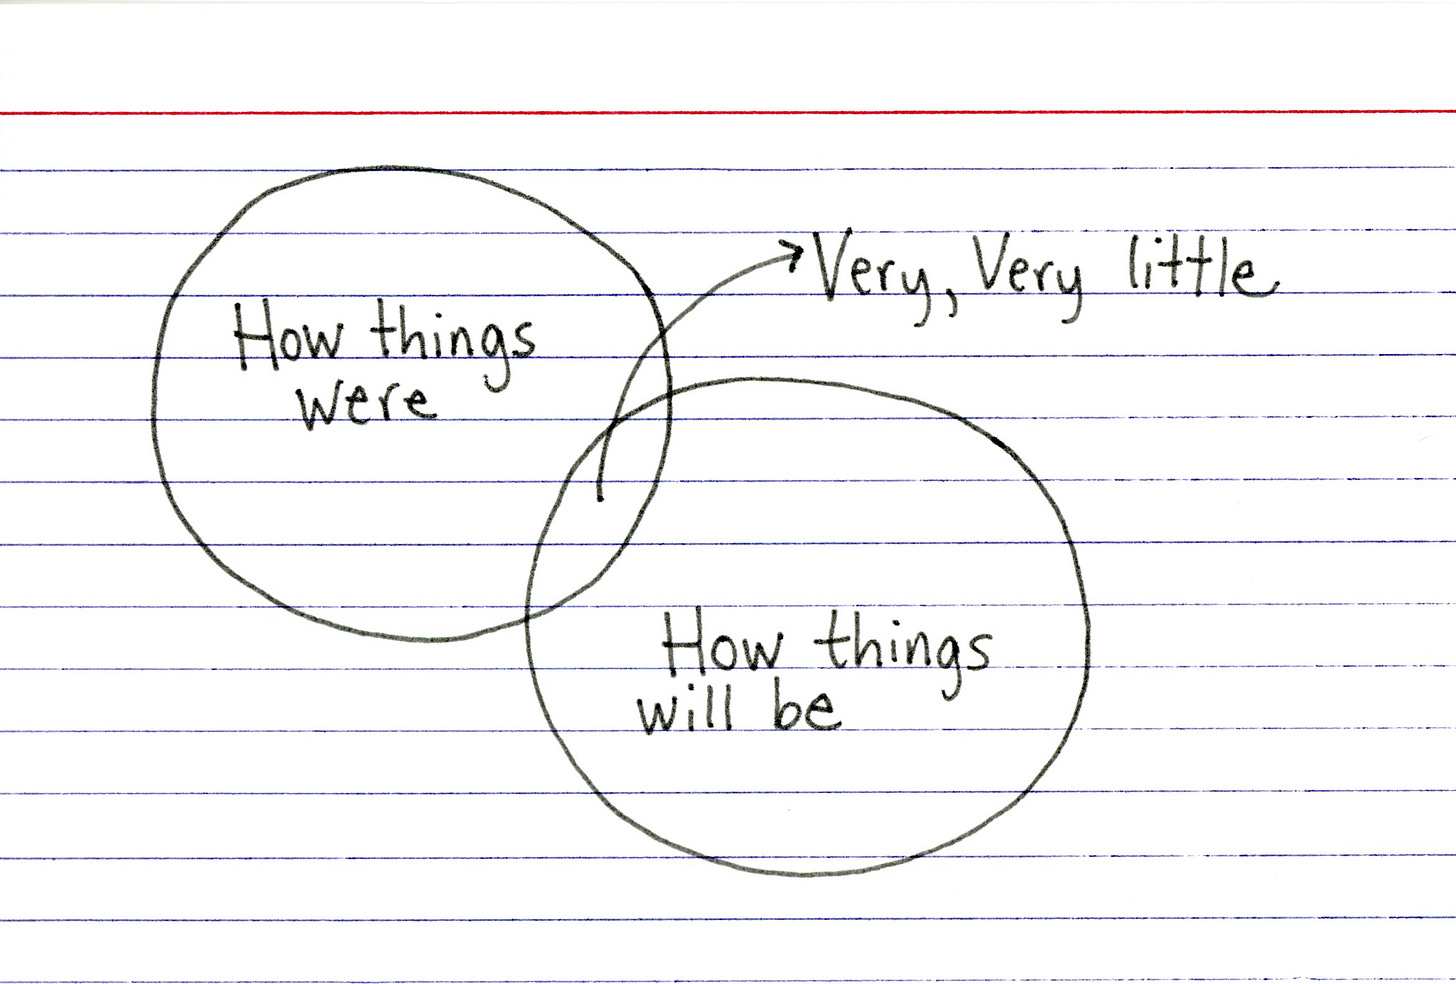 How things
were
Very, Very little
How things
will be